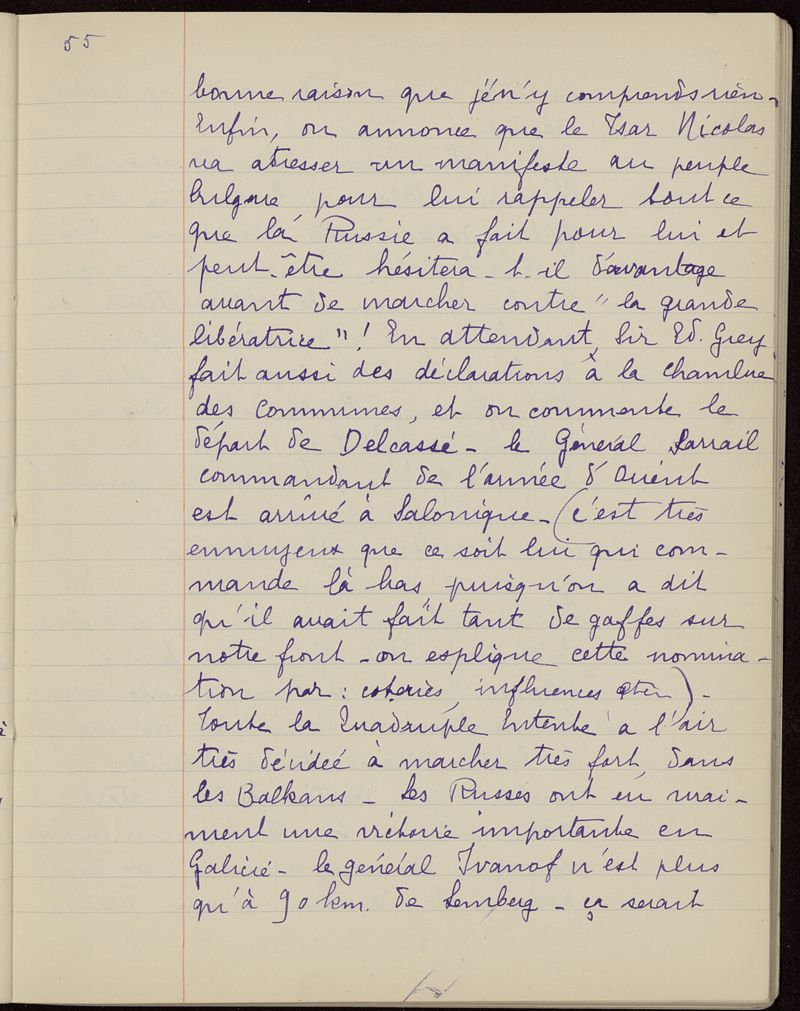 55
bonne raison que je n'y comprends rien -
Enfin, on annonce que le Tsar Nicolas
va adresser un manifeste au peuple
bulgare pour lui rappeler tout ce
que la Russie a fait pour lui et
peut-être hésitera-t-il davantage
avant de marcher contre "la grande
libératrice" ! En attendant, Sir Ed. Grey
fait aussi des déclarations à la chambre
des Communes, et on commente le
départ de Delcassé - le Général Sarrail
commandant de l'armée d'Orient
est arrivé à Salonique - (c'est très
ennuyeux que ce soit lui qui com-
mande là bas, puisqu'on a dit
qu'il avait fait tant de gaffes sur
notre front - on esplique cette nomina-
tion par : coteries, influences etc.) -
Toute la Quadruple Entente a l'air
très décidée à marcher très fort, dans
les Balkans - Les Russes ont eu vrai-
ment une victoire importante en
Galicie - le général Ivanof n'est plus
qu'à 90 km. de Lemberg - ça serait